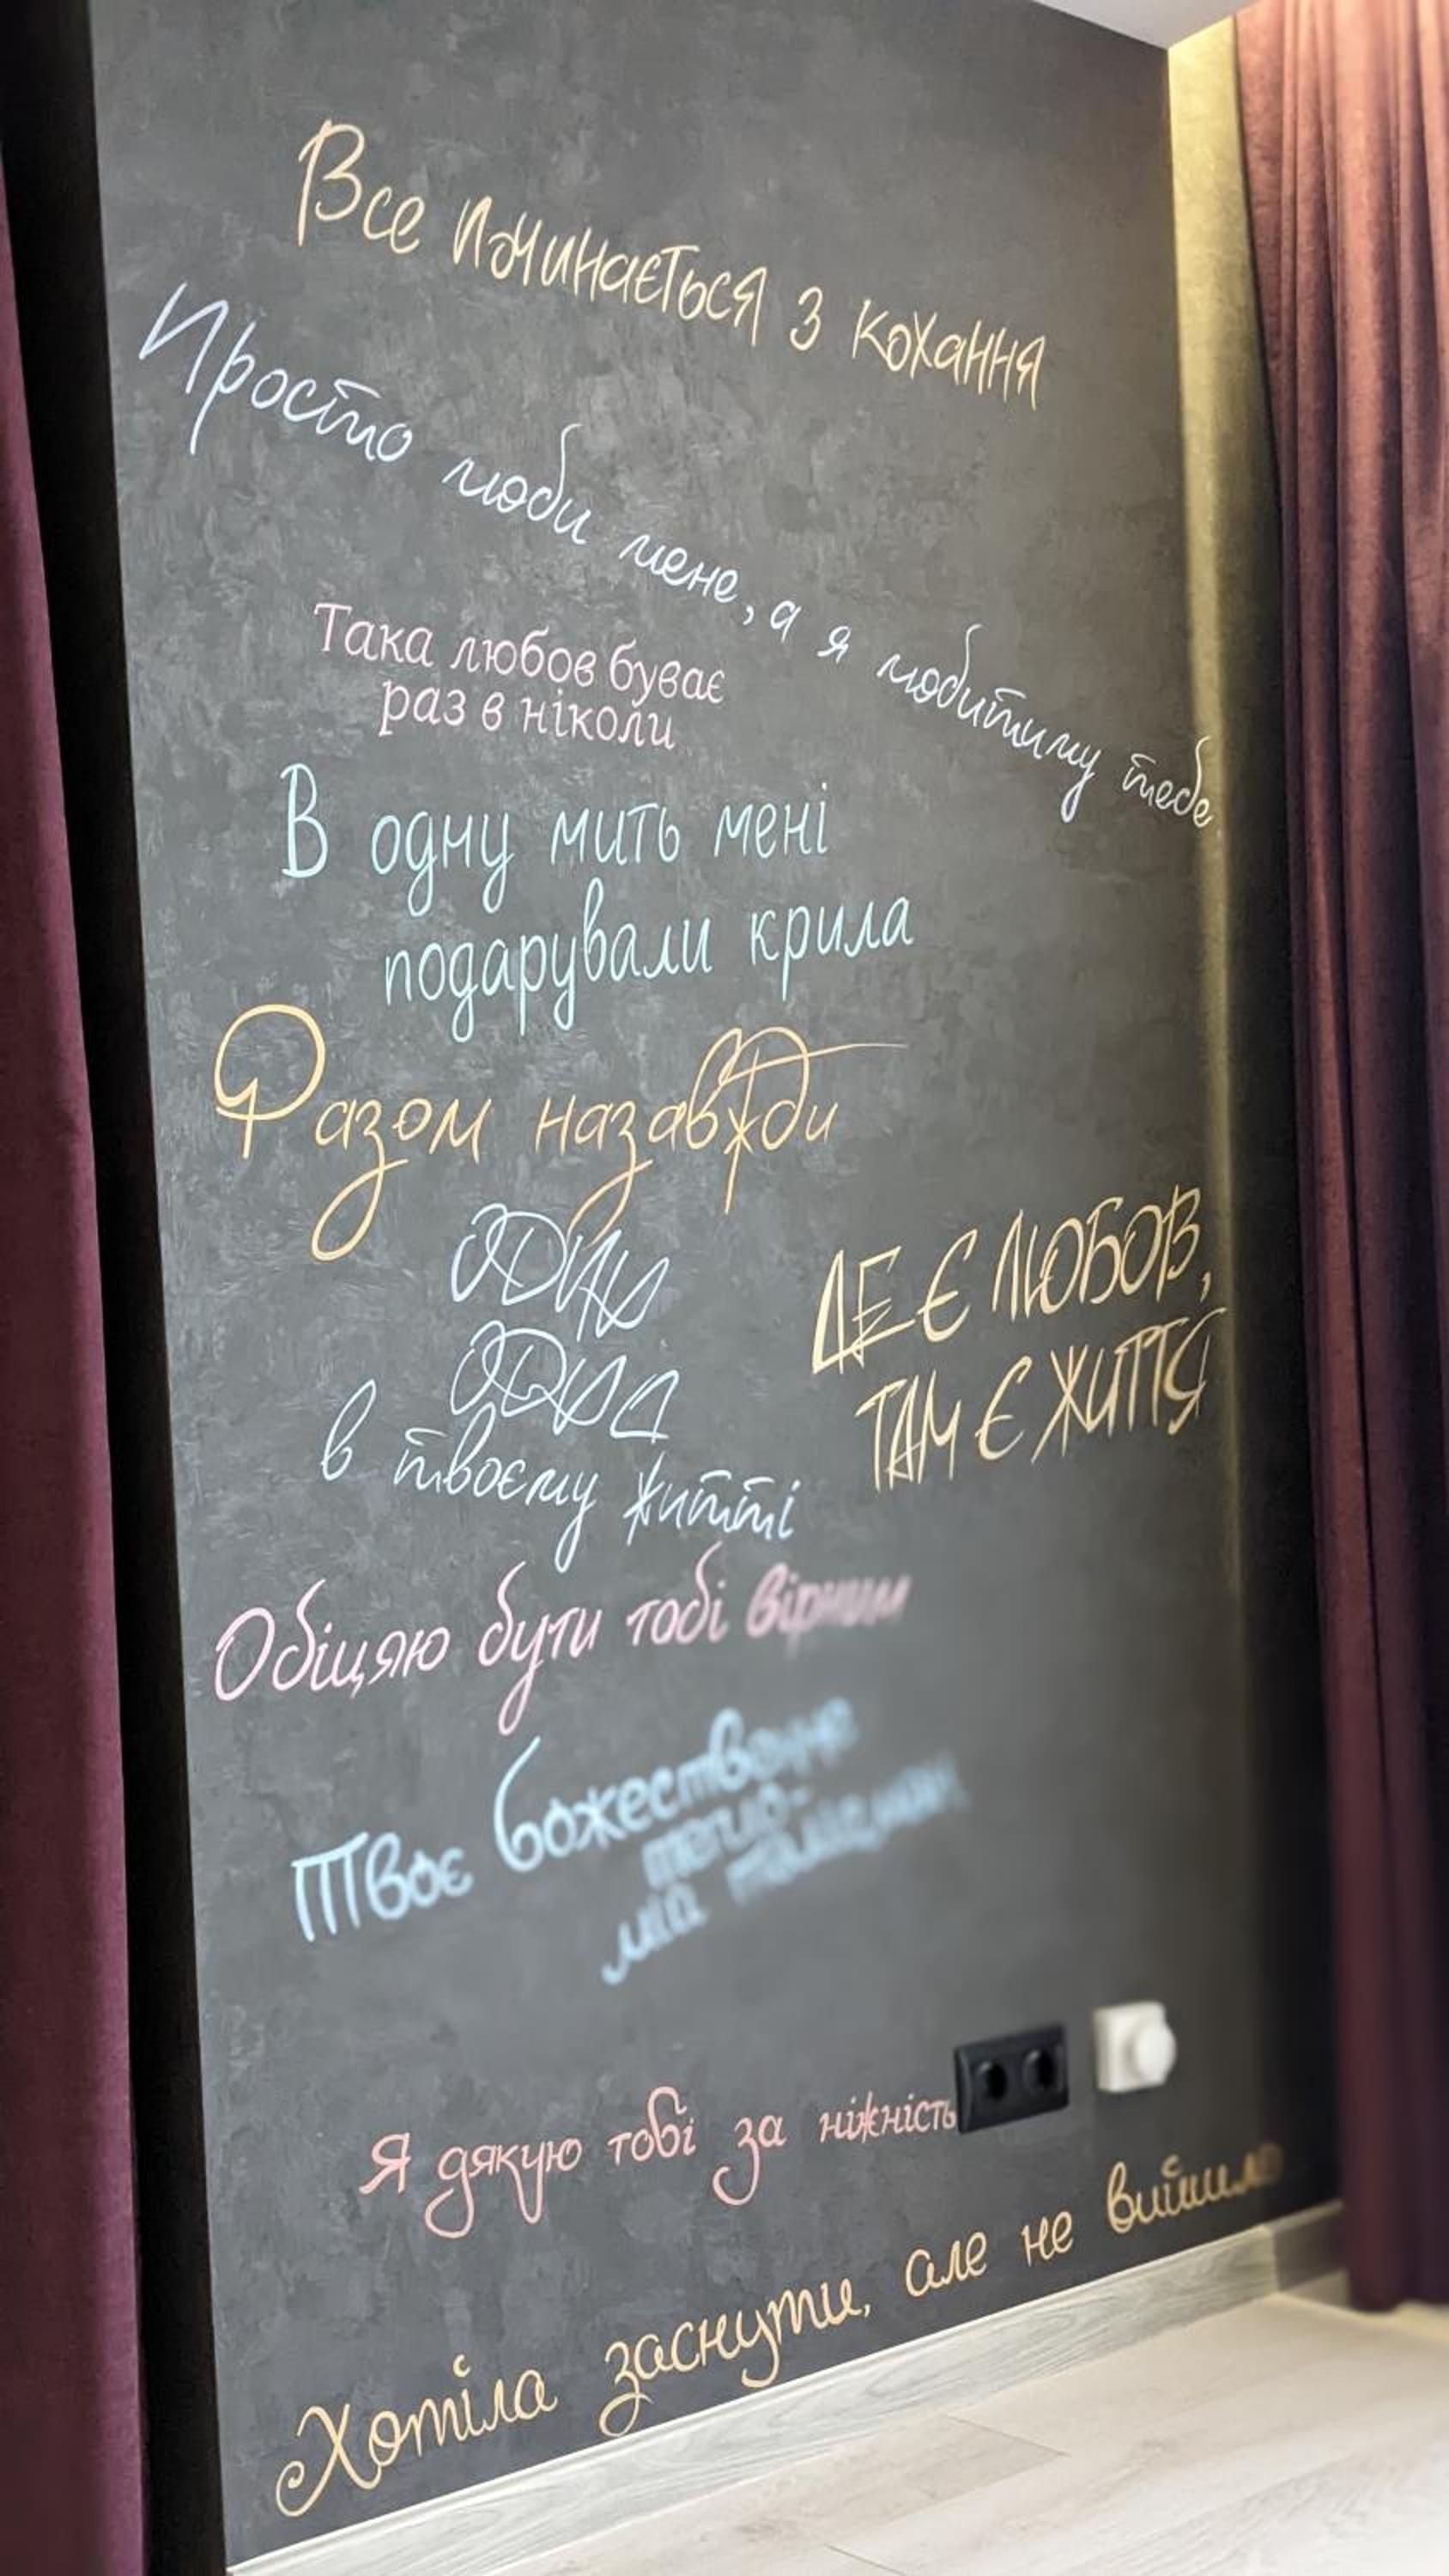 Все починається з кохання
Просто люби мене, а я любитиму тебе.
Така любов буває
раз в ніколи
В одну мить мені
подарували крила
Разом назавжди
одна
одна
в твоєму житті
ДЕ Є ЛЮБОВ,
ТАМ Є ЖИТТЯ
Обіцяю бути тобі вірним
Твоє божественне
тепло-
мій талісман
Я дякую тобі за ніжність
Хотіла заснути, але не вийшло